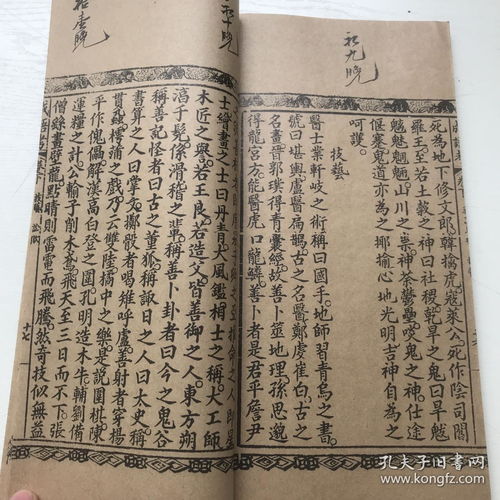 初九晚
死為地下修文郎韓擒虎寇萊公死作陰司閻
羅王至若土穀之神曰社稷乾旱之鬼曰旱魃
魑魅魍魎山川之祟神荼鬱壘啖鬼之神仕途
偃蹇鬼道亦為之揶揄心地光明吉神自為之
呵護
技藝
醫士業軒岐之術稱曰國手地師習青烏之書
號曰堪輿盧醫扁鵲古之名醫鄭虔崔白古之
名畫晉郭璞得青囊經故善卜筮地理孫思邈
得龍宮方能醫虎口龍鱗善卜者是君平詹尹
之亞推命之人即星
士繪畫之士曰丹青大風鑑相士之稱大工師
木匠之譽若王良若造父皆善御之人東方朔
淳于髡係滑稽之輩稱善卜卦者曰今之鬼谷
稱善記怪者曰古之董狐稱諏日之人曰太史稱
書算之人曰掌文擲骰者喝雉呼盧善射者穿楊
貫蝨樗蒲之戲乃云雙陸橘中之樂是說圍棋陳
平作傀儡解漢高白登之圍孔明造木牛輔劉備
運糧之計公輸子削木鳶飛天至三日而不下張
僧繇畫壁龍點睛則雷電而飛騰然奇技似無益
十七
孔夫子旧书网